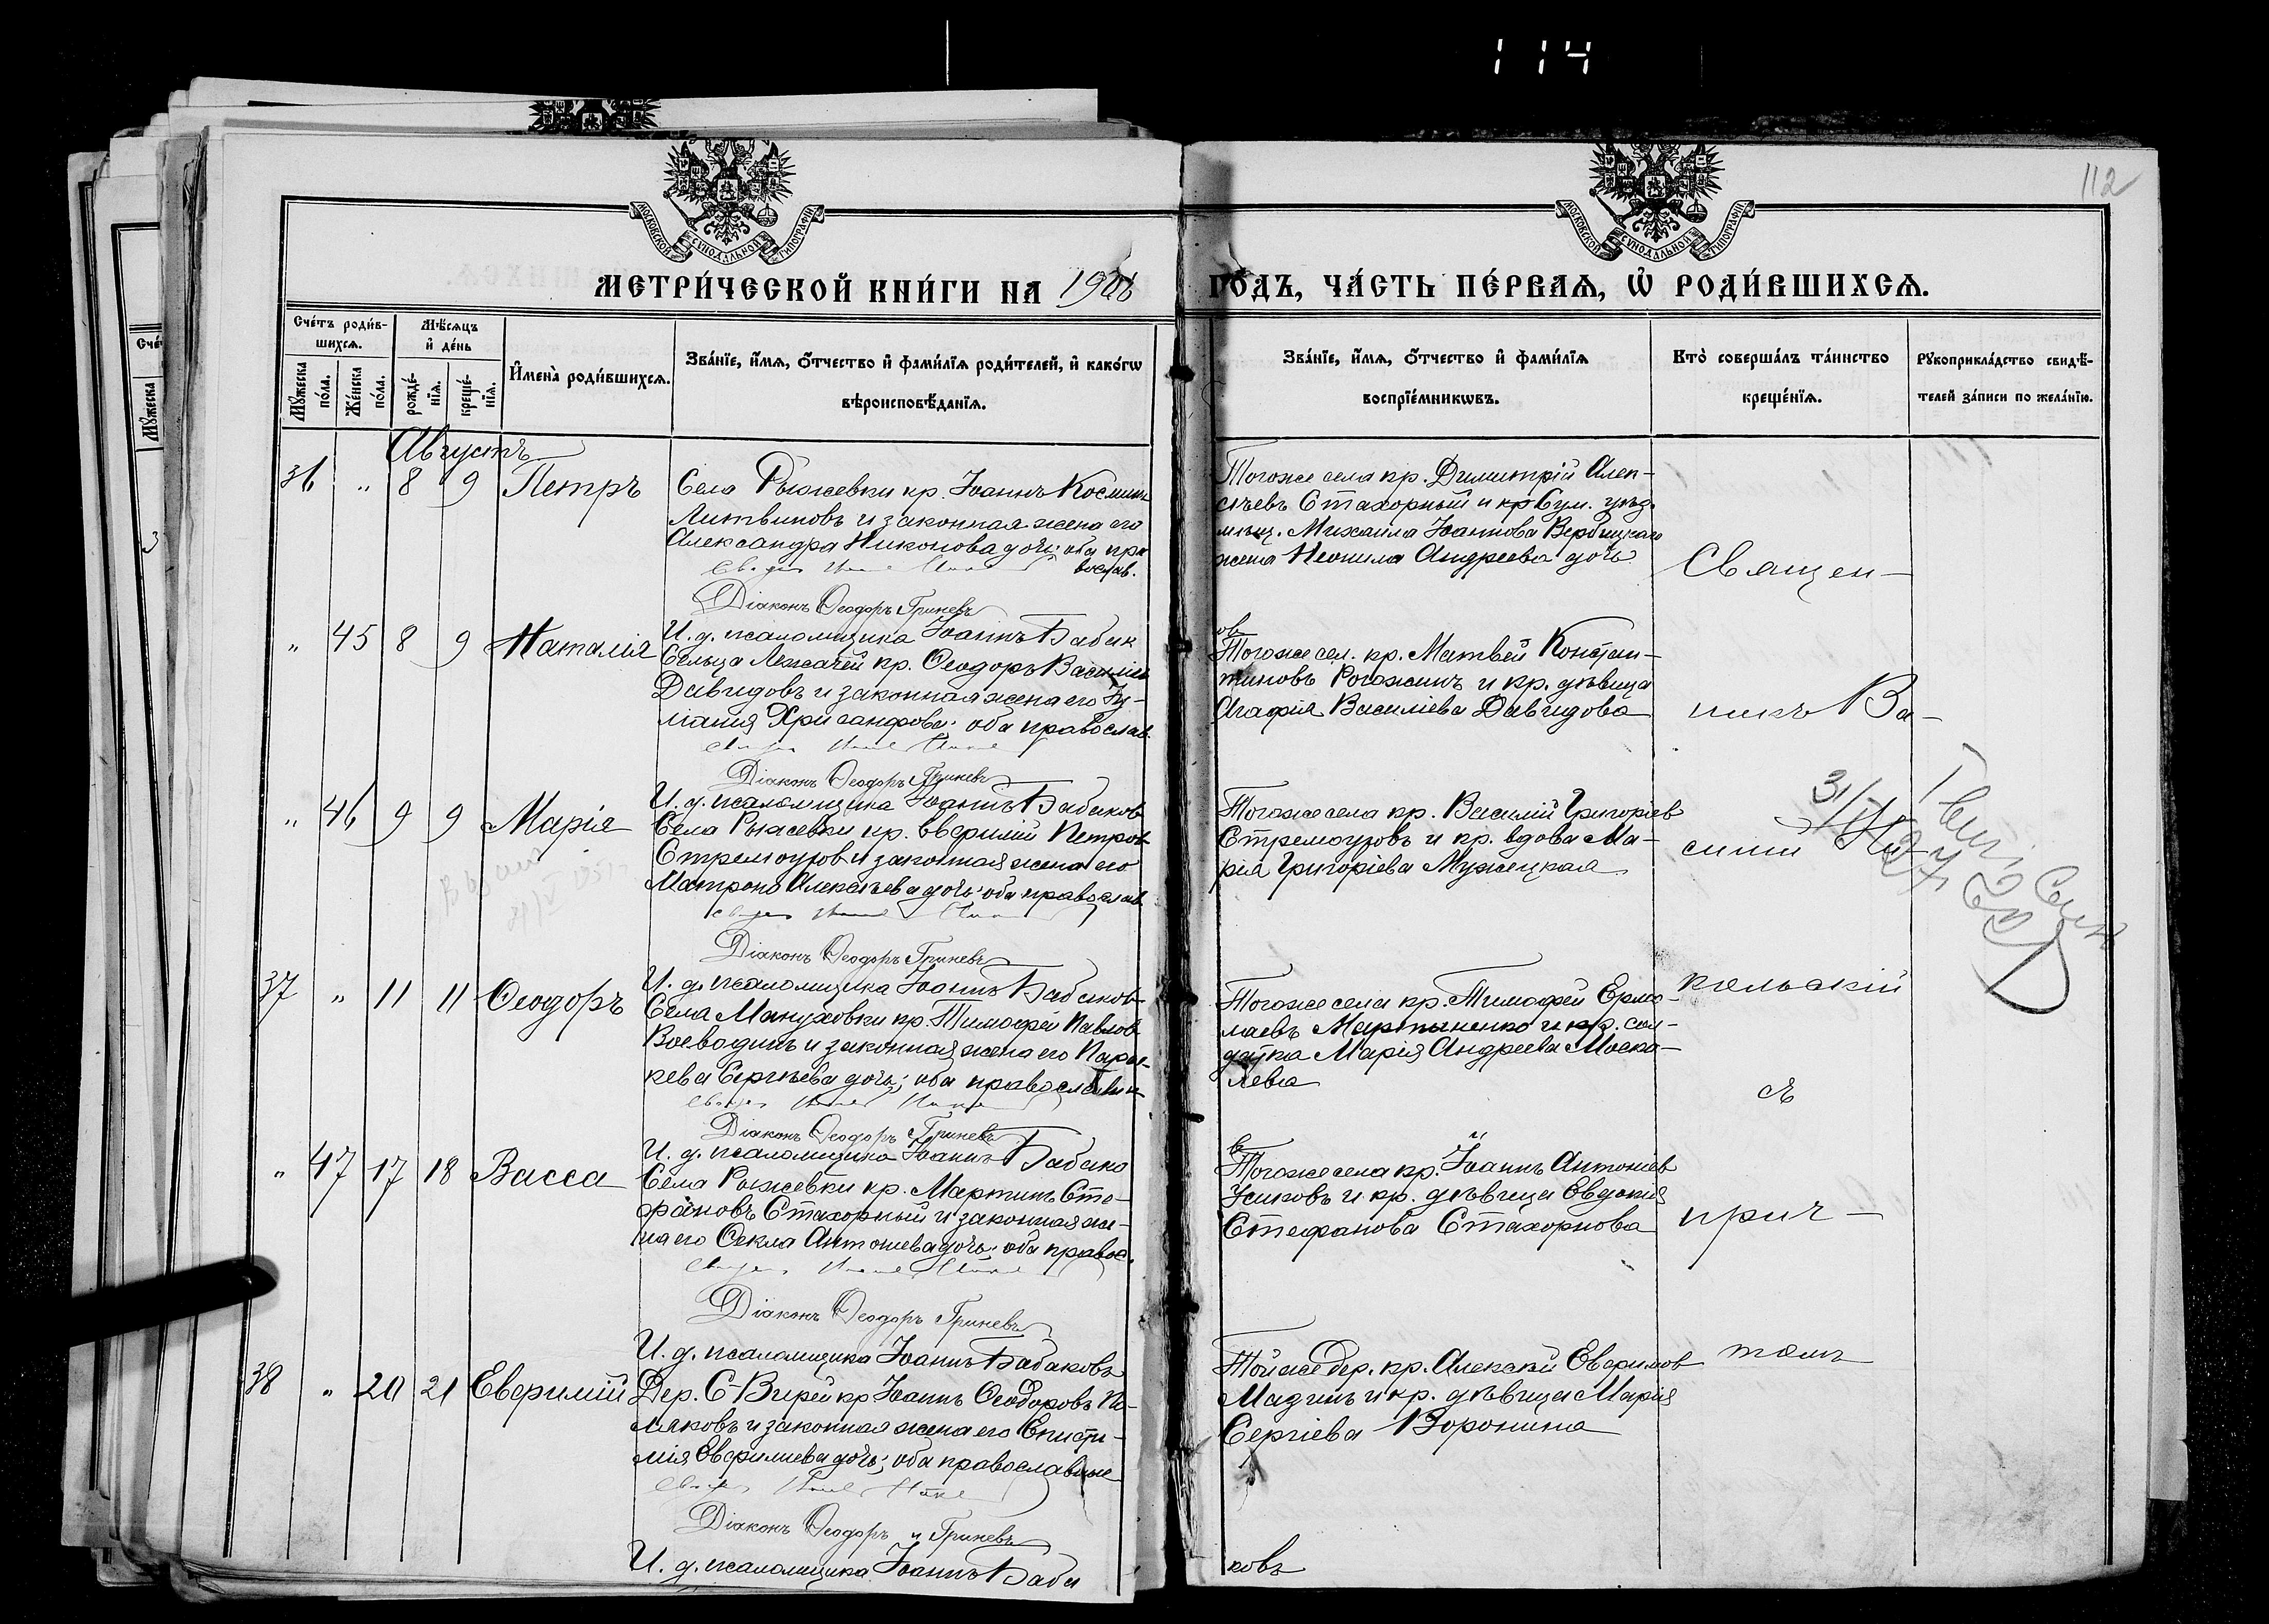 114
112
МОСКОВСКОЙ СѴНОДАЛЬНОЙ ТИПОГРАФІИ
МОСКОВСКОЙ СѴНОДАЛЬНОЙ ТИПОГРАФІИ
МЕТРИ́ЧЕСКОЙ КНИ́ГИ НА 1908 ГО́ДЪ, ЧА́СТЬ ПЕ́РВАѦ, Ѡ҆ РОДИ́ВШИХСѦ.
Сче́тъ роди́вшихсѧ.
Мꙋ́жеска по́ла.
Же́нска по́ла.
Мѣ́сѧцъ и҆ де́нь
рожде́нїѧ.
креще́нїѧ.
И҆мена̀ роди́вшихсѧ.
Зва́нїе, и҆́мѧ, ѻ҆́тчество и҆ фами́лїѧ роди́телей, и҆ како́гѡ вѣроисповѣ́данїѧ.
Зва́нїе, и҆́мѧ, ѻ҆́тчество и҆ фами́лїѧ воспрїе́мникѡвъ.
Кто̀ соверша́лъ та́инство креще́нїѧ.
Рꙋкоприкла́дство свидѣ́телей за́писи по жела́нїю.
Августъ
36 " 8 9 Петръ
Села Рыжевки кр. Іоаннъ Косминъ
Литвиновъ и законная жена его
Александра Никонова дочь; оба пра
вослав.
Діаконъ Ѳеодоръ Гриневъ
И. д. псаломщика Іоаннъ Бабак
ов
Тогоже села кр. Димитрій Алек-
сѣевъ Стахорный и
Михаила Іоаннова Вербицкаго
жена Неонила Андреева дочь
" 45 8 9 Наталія
Сельца Лежачей кр. Ѳеодоръ Василіев
Давидовъ и законная жена его Іу-
ліанія Хрисанфова; оба православ.
Діаконъ Ѳеодоръ Гриневъ
И. д. псаломщика Іоаннъ Бабаков
Тогоже сел. кр. Матвей Констан-
тиновъ Рогожинъ и кр. дѣвица
Агафія Василіева Давидова
" 46 9 9 Марія
Села Рыжевки кр. Евфимій Петров
Стремоухов и законная жена его
Матрона Алексѣева дочь; оба православ.
Діаконъ Ѳеодоръ Гриневъ
И. д. псаломщика Іоаннъ Бабаков
Тогоже села кр. Василій Григоріев
Стремоуховъ и кр. вдова Ма-
рія Григоріева Мужецкая
37 " 11 11 Ѳеодоръ
Села Мануховки кр. Тимофей Павлов
Воеводинъ и законная жена его Парас-
кева Сергѣева дочь; оба православны
Діаконъ Ѳеодоръ Гриневъ
И. д. псаломщика Іоаннъ Бабако
въ
Тогоже села кр. Тимофей Ермо-
лаевъ Мартыненко и кр. сол-
датка Марія Андреева Моска-
лева
" 47 17 18 Васса
Села Рыжевки кр. Мартинъ Сте-
фановъ Стахорный и законная же-
на его Ѳекла Антоніева дочь; оба правос.
Діаконъ Ѳеодоръ Гриневъ
И. д. псаломщика Іоаннъ Бабаковъ
Тогоже села кр. Іоаннъ Антоніев
Усиковъ и кр. дѣвица Евдокія
Стефанова Стахорнова
38 " 20 21 Евфимій
Дер. С-Вирей кр. Іоаннъ Ѳеодоровъ По-
ляковъ и законная жена его Еписти-
мія Евфиміева дочь; оба православные
Діаконъ Ѳеодоръ Гриневъ
И. д. псаломщика Іоаннъ Баба
ковъ
Тойже дер. кр. Алексѣй Евфимов
Мазинъ и кр. дѣвица Марія
Сергіева Воронина
Священ-
никъ Ва-
силій Ни-
кольскій
съ
прич-
томъ